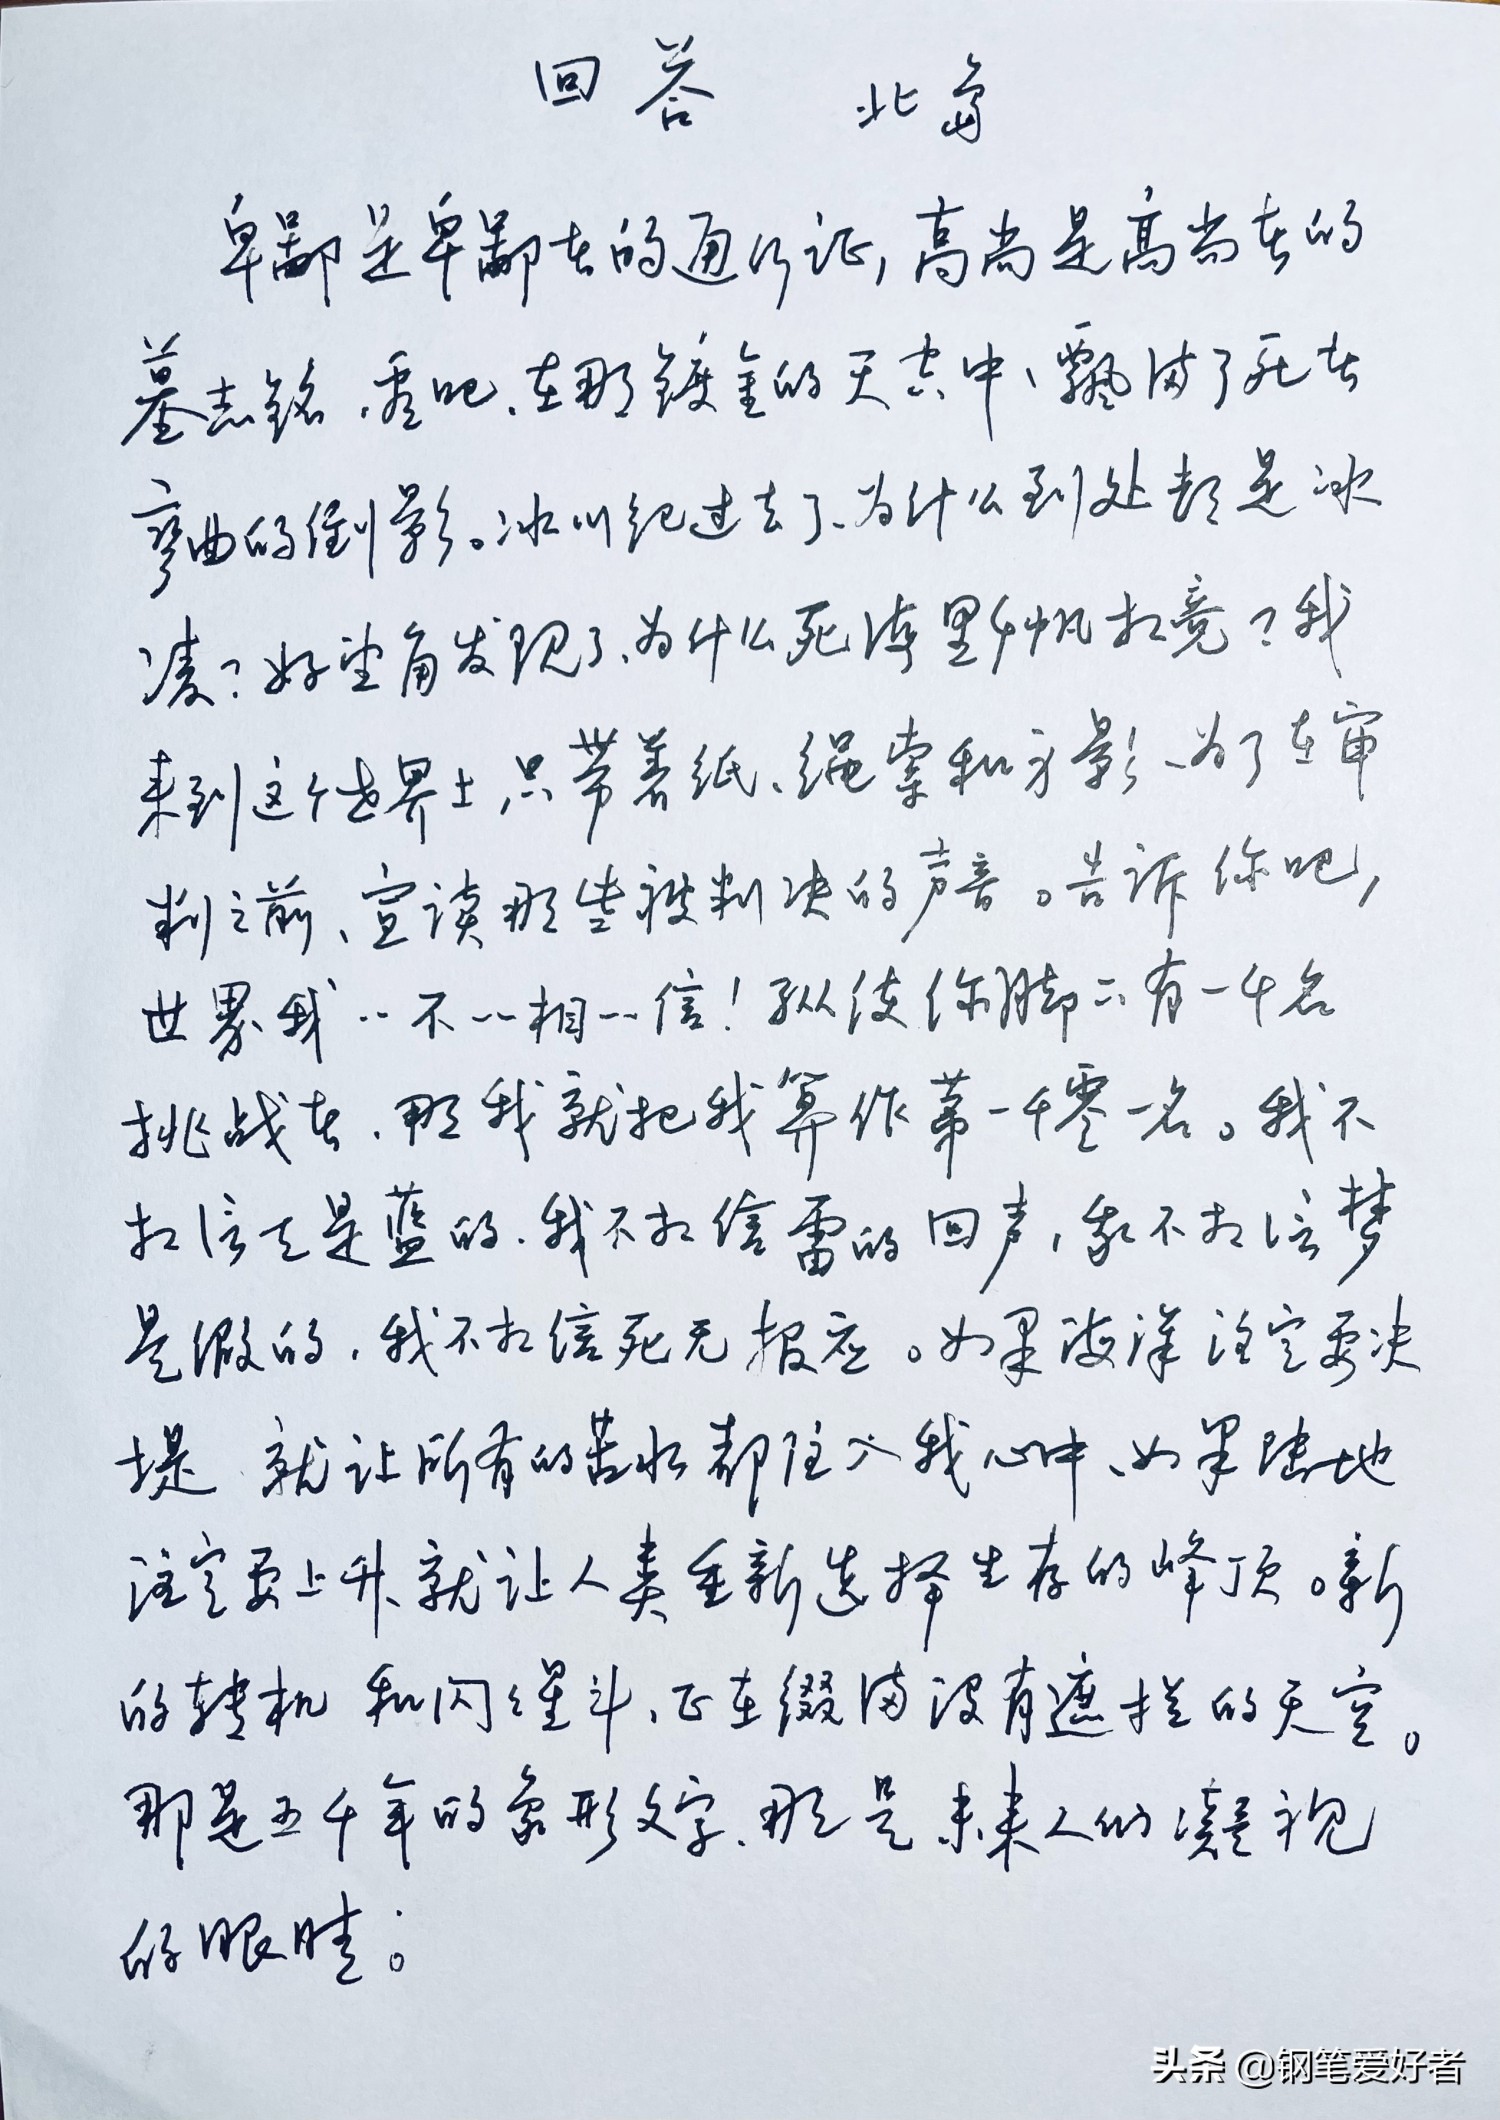 回答 北岛
卑鄙是卑鄙者的通行证,高尚是高尚者的
墓志铭,看吧,在那镀金的天空中,飘满了死者
弯曲的倒影。冰川纪过去了,为什么到处都是冰
凌?好望角发现了,为什么死海里千帆相竞?我
来到这个世界上,只带着纸、绳索和身影,为了在审
判之前,宣读那些被判决的声音。告诉你吧,
世界我--不--相--信!纵使你脚下有一千名
挑战者,那我就把我算作第一千零一名。我不
相信天是蓝的,我不相信雷的回声,我不相信梦
是假的,我不相信死无报应。如果海洋注定要决
堤 就让所有的苦水都注入我心中,如果陆地
注定要上升,就让人类重新选择生存的峰顶。新
的转机和闪闪星斗,正在缀满没有遮拦的天空。
那是五千年的象形文字,那是未来人们凝视
的眼睛。
头条 @钢笔爱好者